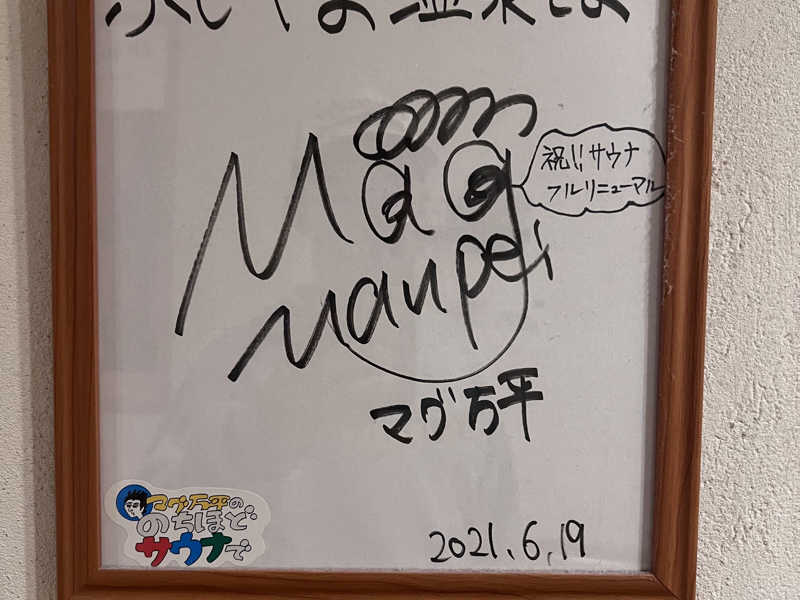 祝!! サウナ
フルリニューアル
Mag
Manpei
マグ万平
マグ万平の
のちほど
サウナで
2021.6.19